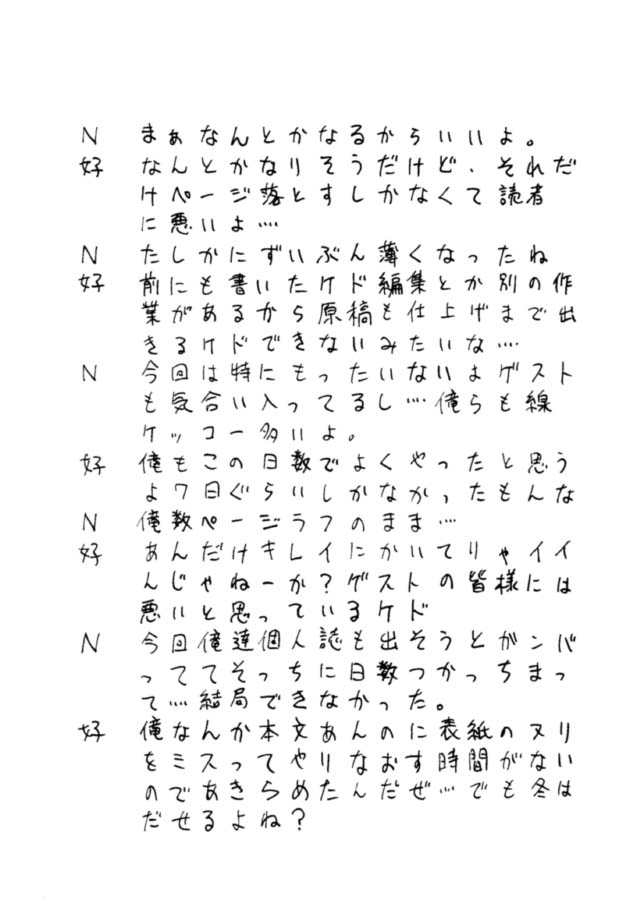 N まぁなんとかなるからいいよ。
好 なんとかなりそうだけど、それだ
けページ落とすしかなくて読者
に悪いよ…
N たしかにずいぶん薄くなったね
好 前にも書いたケド編集とか別の作
業があるから原稿も仕上げまで出
きるケドできないみたいな…
N 今回は特にもったいないよゲスト
も気合い入ってるし…俺らも線
ケッコー多いよ。
好 俺もこの日数でよくやったと思う
よ7日ぐらいしかなかったもんな
N 俺数ページラフのまま…
好 あんだけキレイにかいてりゃイイ
んじゃねーか?ゲストの皆様には
悪いと思っているケド
N 今回俺達個人誌も出そうとガンバ
っててそっちに日数つかっちまっ
て…結局できなかった。
好 俺なんか本文あんのに表紙のヌリ
をミスってやりなおす時間がない
のであきらめたんだぜ…でも冬は
だせるよね?